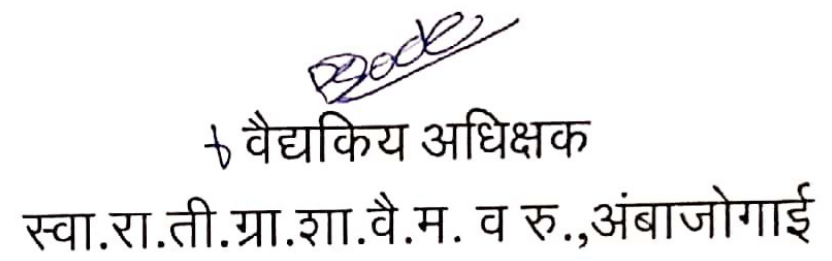 वैद्यकिय अधिक्षक
स्वा.रा.ती.ग्रा.शा.वै.म. व रु.,अंबाजोगाई